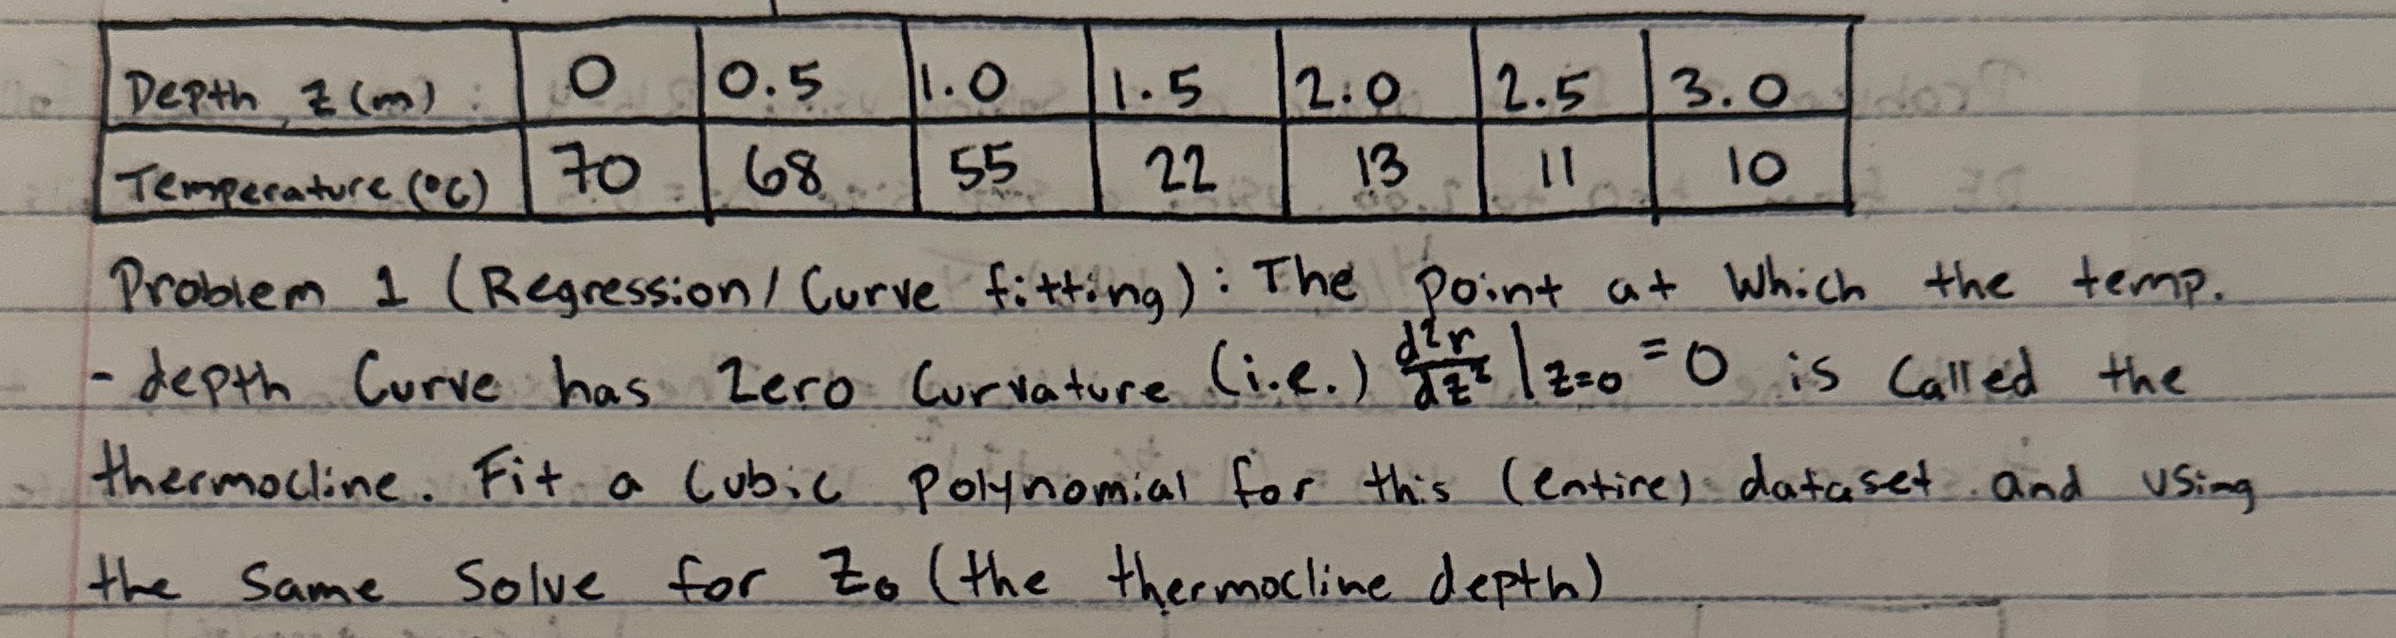 Depth, z (m) 0 0.5 1.0 1.5 2.0 2.5 3.0
Temperature (°C) 70 68 55 22 13 11 10
Problem 1 (Regression/Curve fitting): The point at which the temp.
-depth Curve has Zero Curvature (i.e.) d²r/dz² |z=0 = 0 is called the
thermocline. Fit a Cubic Polynomial for this (entire) dataset and using
the same Solve for Z₀ (the thermocline depth)